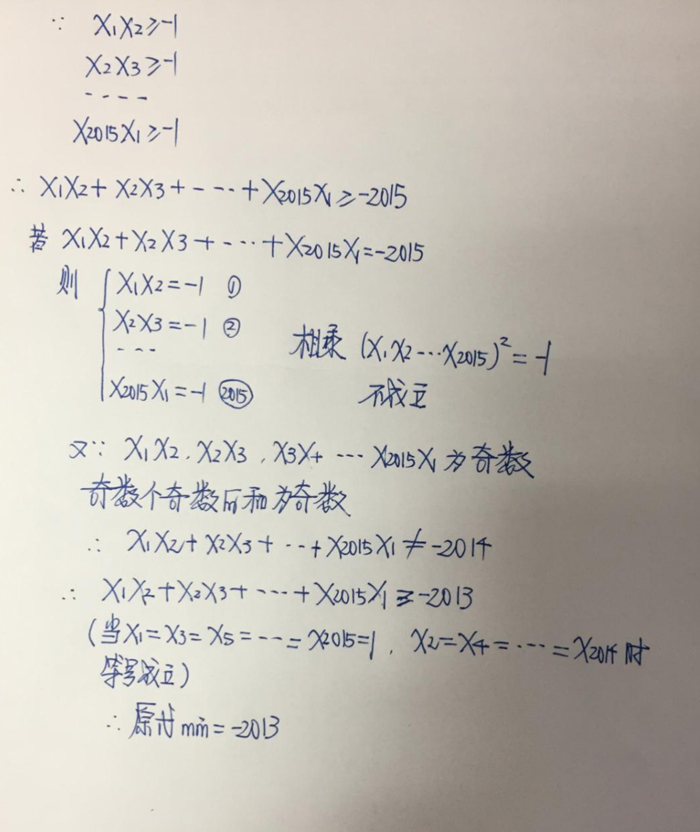 ∵ X₁X₂≥-1
X₂X₃≥-1
----
X₂₀₁₅X₁≥-1
∴ X₁X₂+X₂X₃+----+X₂₀₁₅X₁≥-2015
若 X₁X₂+X₂X₃+---+X₂₀₁₅X₁=-2015
则 { X₁X₂=-1 ①
X₂X₃=-1 ②
---
X₂₀₁₅X₁=-1 (2015)
相乘 (X₁X₂---X₂₀₁₅)²=-1
不成立
又∵ X₁X₂, X₂X₃, X₃X₄ --- X₂₀₁₅X₁ 为奇数
奇数个奇数的和为奇数
∴ X₁X₂+X₂X₃+---+X₂₀₁₅X₁≠-2014
∴ X₁X₂+X₂X₃+----+X₂₀₁₅X₁≥-2013
(当X₁=X₃=X₅=---=X₂₀₁₅=1, X₂=X₄=---=X₂₀₁₄时
等号成立)
∴ 原式min=-2013